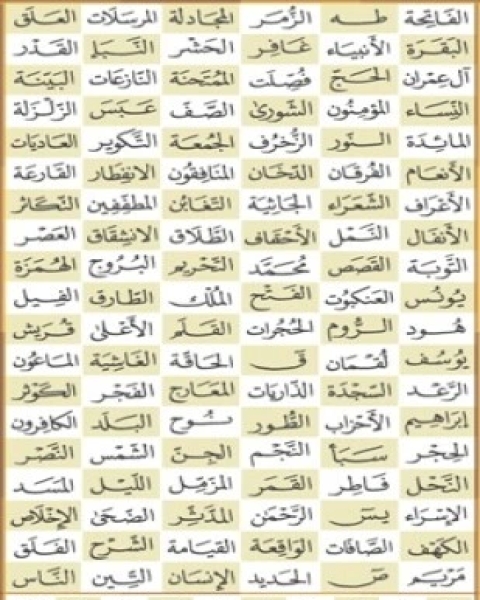 الفَاتِحَة طه الزُّمَر المجَادلة المرسَلات العَلَق
البَقَرَة الأنبيَاء غَافِر الحَشْر النَّبَإ القَدْر
آل عِمْرَان الحَجّ فُصِّلَت المُمْتَحنَة النّازعَات البَيّنَة
النِّسَاء المؤمنُون الشّورىٰ الصَّفّ عَبَسَ الزّلْزَلة
المائِدَة النّور الزّخرُف الجُمُعَة التَّكوير العَاديَات
الأنعَام الفُرقَان الدّخَان المنَافِقُون الانفِطَار القَارعَة
الأعْرَاف الشّعَرَاء الجَاثيَة التّغَابُن المطفّفِين التّكَاثر
الأنفَال النَّمْل الأحْقاف الطَّلَاق الانشِقَاق العَصْر
التَّوبَة القَصَص مُحَمَّد التّحْريم البُرُوج الهُمَزَة
يُونُس العَنكبُوت الفَتْح المُلْك الطّارِق الفِيل
هُود الرُّوم الحُجُرات القَلَم الأعْلىٰ قُرَيش
يُوسُف لُقمَان قٓ الحَاقّة الغَاشِيَة المَاعُون
الرَّعْد السَّجْدَة الذّاريَات المعَارج الفَجْر الكَوْثر
إبرَاهِيم الأحْزاب الطُّور نُوح البَلَد الكافِرون
الحِجْر سَبَأ النَّجْم الجِنّ الشَّمْس النَّصْر
النَّحْل فَاطِر القَمَر المزمّل اللّيْل المسَد
الإسْرَاء يسٓ الرَّحْمٰن المدَّثّر الضّحَىٰ الإخْلاص
الكَهْف الصَّافات الوَاقِعَة القيَامَة الشَّرْح الفَلَق
مَرْيَم صٓ الحَديد الإنسَان التِّين النَّاس